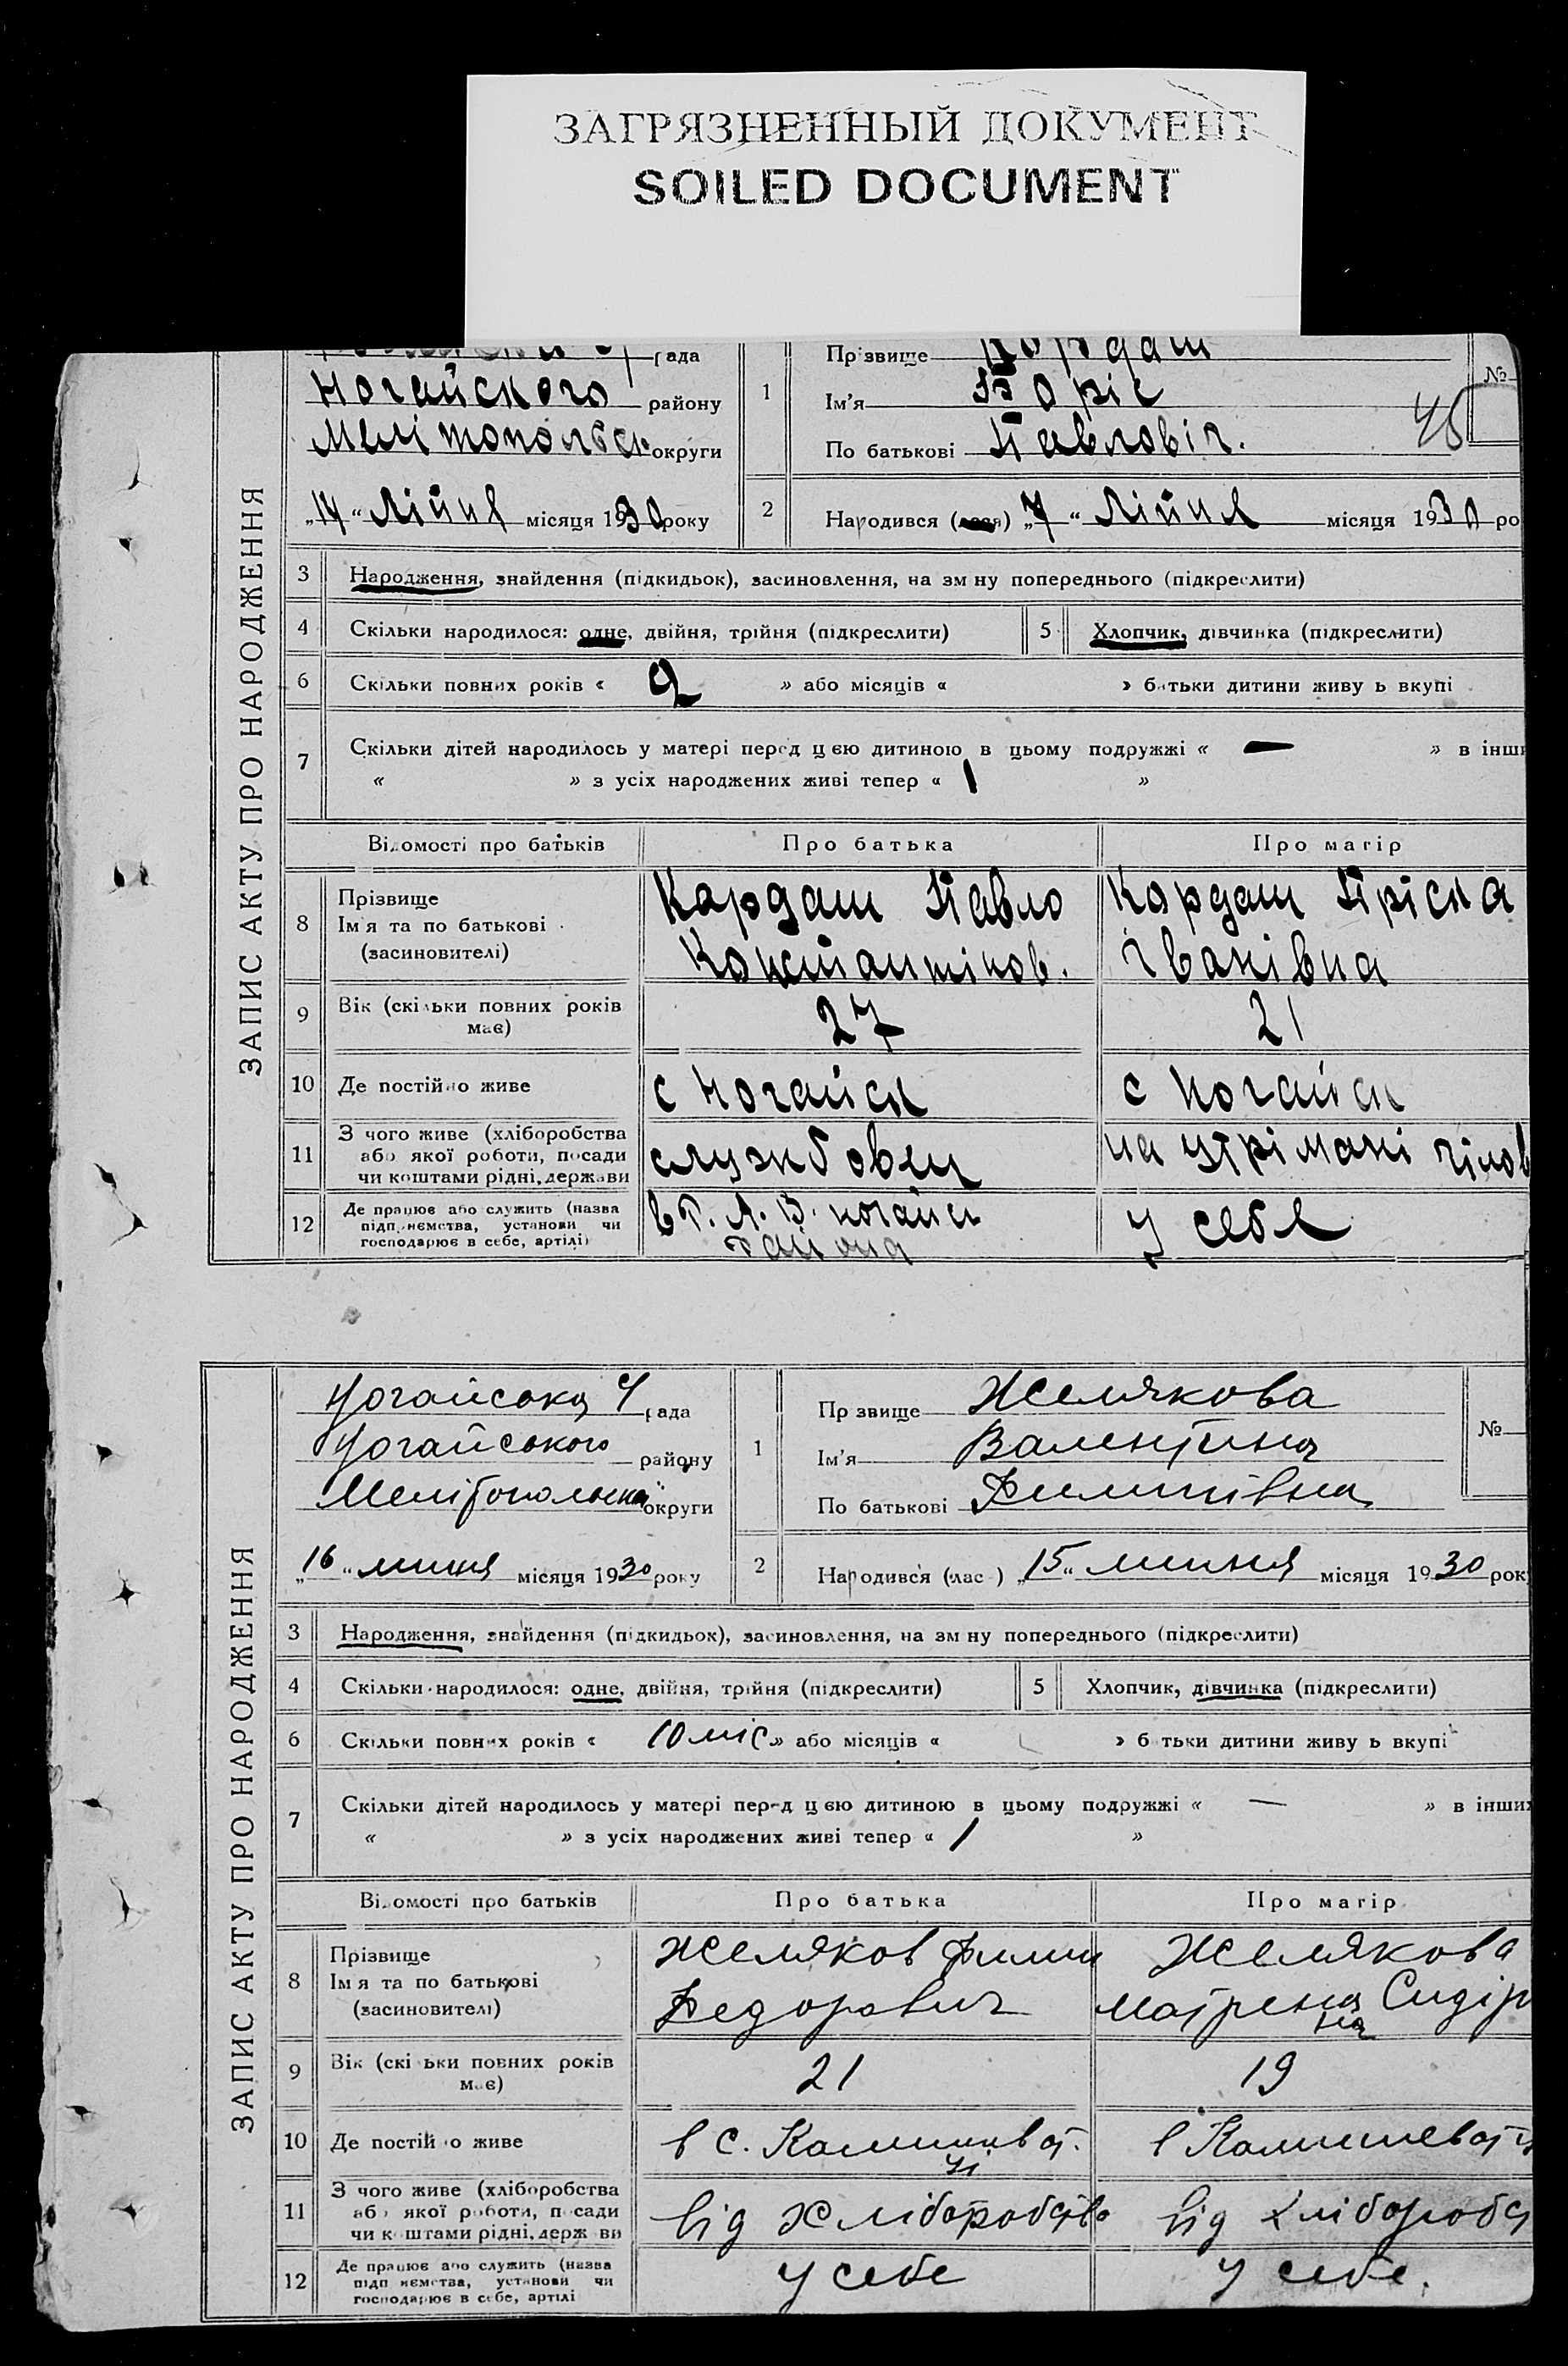 ЗАГРЯЗНЕННЫЙ ДОКУМЕНТ
SOILED DOCUMENT
ЗАПИС АКТУ ПРО НАРОДЖЕННЯ
рада
Ногайского району
Мелітопольськ округи
„14“ Лійня місяця 1930 року
1
Прізвище Кордаш
Ім'я Боріс
По батькові Павловіч.
№
45
2
Народився (лася) „7“ Лійня місяця 1930 ро
3 Народження, знайдення (підкидьок), засиновлення, на зм ну попереднього (підкреслити)
4 Скільки народилося: одне, двійня, трійня (підкреслити)
5 Хлопчик, дівчинка (підкреслити)
6 Скільки повних років « 2 » або місяців « » батьки дитини живу ь вкупі
7 Скільки дітей народилось у матері перед цією дитиною в цьому подружжі « — » в інши
« » з усіх народжених живі тепер « 1 »
Відомості про батьків Про батька Про матір
8 Прізвище
Ім'я та по батькові
(засиновителі)
Кардаш Павло
Константінов.
Кордаш Пріска
Іванівна
9 Вік (скільки повних років
має)
27
21
10 Де постійно живе
с Ногайск
с Ногайск
11 З чого живе (хліборобства
або якої роботи, посади
чи коштами рідні, держави
службовец
на утрімані чілов
12 Де працює або служить (назва
підприємства, установи чи
господарює в себе, артілі)
в Р. А. В. Ногайск
района
у себя
ЗАПИС АКТУ ПРО НАРОДЖЕННЯ
Ногайська рада
Ногайського району
Мелітопольської округи
„16“ липня місяця 1930 року
1
Пр звище Желякова
Ім'я Валентина
По батькові Филипівна
№
2
Народився (лас ) „15“ липня місяця 1930 рок
3 Народження, знайдення (підкидьок), засиновлення, на зм ну попереднього (підкреслити)
4 Скільки народилося: одне, двійня, трійня (підкреслити)
5 Хлопчик, дівчинка (підкреслити)
6 Скільки повних років « 10 міс » або місяців « » б тьки дитини живу ь вкупі
7 Скільки дітей народилось у матері перед цією дитиною в цьому подружжі « — » в інших
« » з усіх народжених живі тепер « 1 »
Відомості про батьків Про батька Про матір
8 Прізвище
Ім я та по батькові
(засиновителі)
Желяков Филип
Федорович
Желякова
Матрена Сидір
на
9 Вік (скі ьки повних років
має)
21
19
10 Де постій о живе
в с. Камишеват.
ці
в Камишеватц
11 З чого живе (хліборобства
або якої роботи, посади
чи коштами рідні, держ ви
від хліборобства
від хліборобст
12 Де працює або служить (назва
підп иємства, установи чи
господарює в себе, артілі
у себе
у себе.